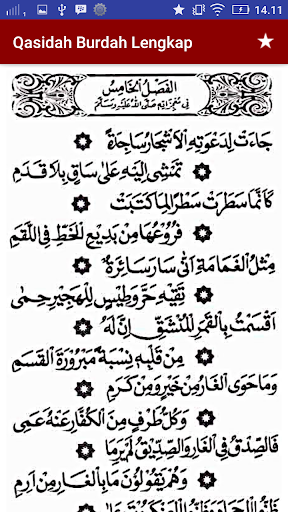 14.11
Qasidah Burdah Lengkap
الفصل الخامس
في معجزاته صلى الله عليه وسلم
جاءت لدعوته الأشجار ساجدة
تمشى إليه على ساق بلا قدم
كأنما سطرت سطرا لما كتبت
فروعها من بديع الخط في اللقم
مثل الغمامة أنى سار سائرة
تقيه حر وطيس للهجير حمى
أقسمت بالقمر المنشق إن له
من قلبه نسبة مبرورة القسم
وما حوى الغار من خير ومن كرم
وكل طرف من الكفار عنه عمى
فالصدق في الغار والصديق لم يرما
وهم يقولون ما بالغار من ارم